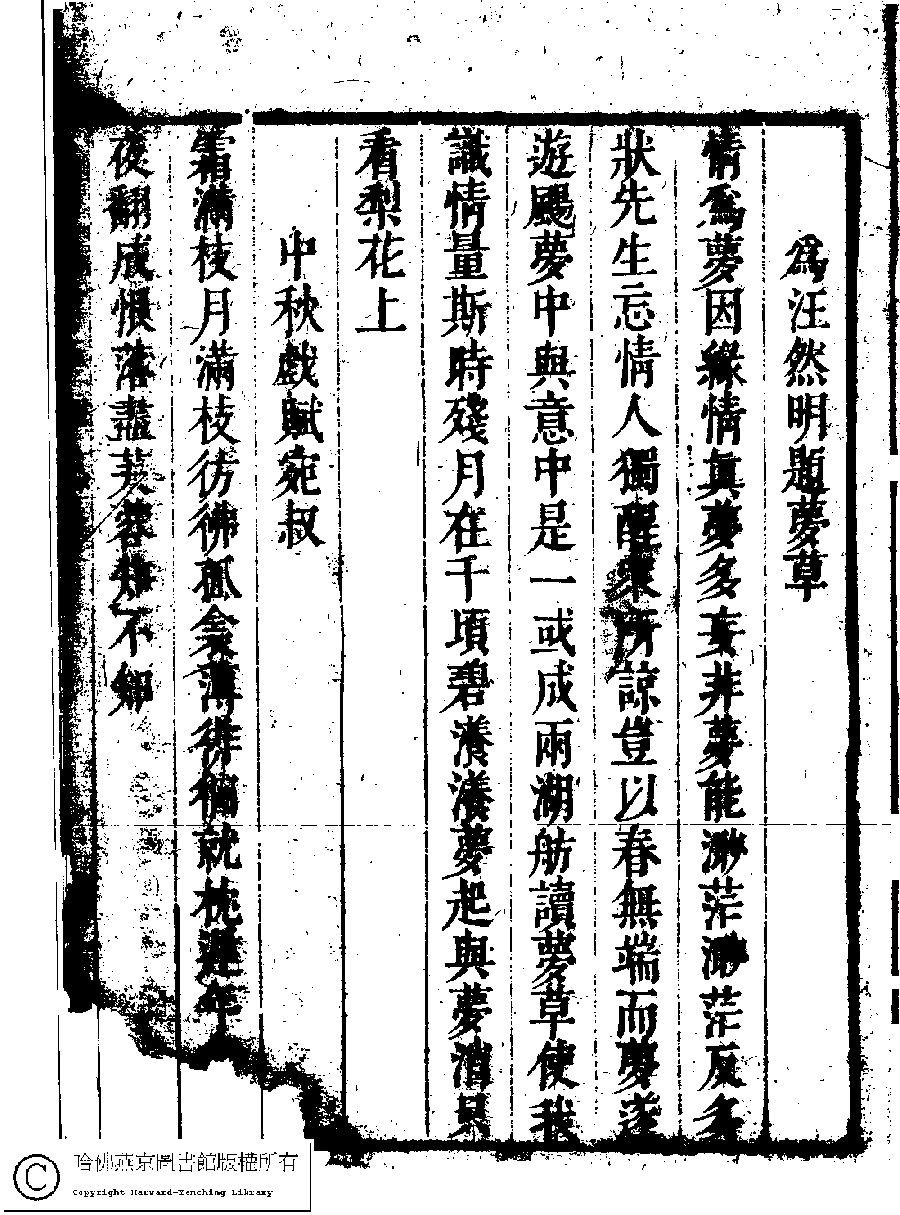 為汪然明題夢草
情為夢因緣情真夢多妄非夢能渺茫渺茫反多
狀先生忘情人獨醒衆所諒豈以春無端而夢遂
遊颺夢中與意中是一或成兩湖舫讀夢草使我
識情量斯時殘月在千頃碧瀁瀁夢起與夢消只
看梨花上
中秋戲賦宛叔
霜滿枝月滿枝彷彿孤衾薄徘徊就枕遲年
夜翻成恨落盡芙蓉不知
哈佛燕京圖書館版權所有
Copyright Harvard-Yenching Library